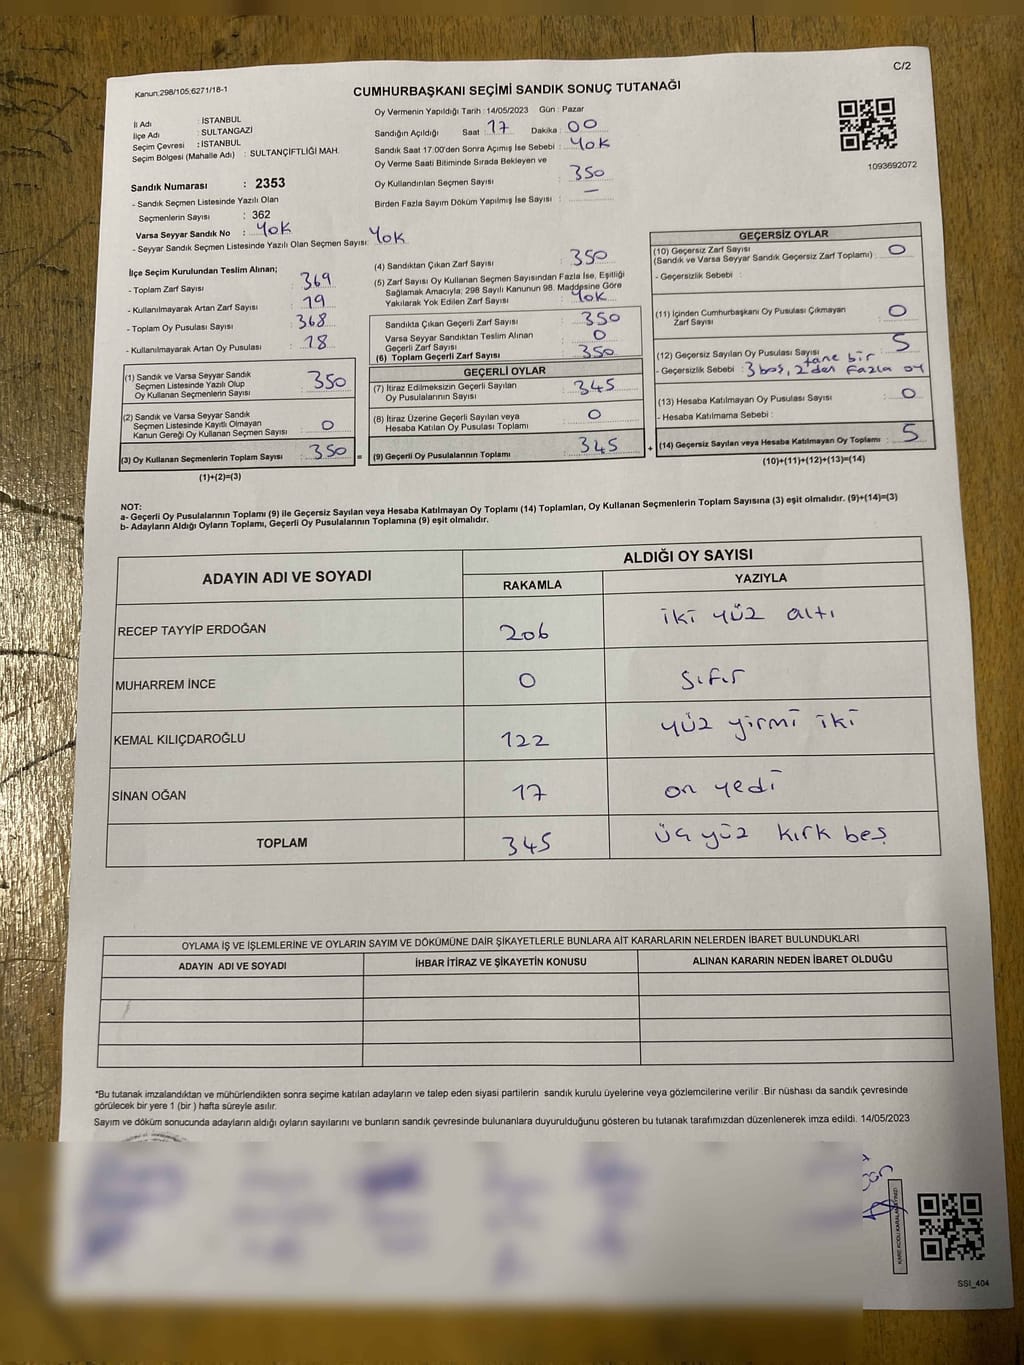 C/2
Kanun:298/105,6271/18-1
CUMHURBAŞKANI SEÇİMİ SANDIK SONUÇ TUTANAĞI
İl Adı : İSTANBUL
İlçe Adı : SULTANGAZİ
Seçim Çevresi : İSTANBUL
Seçim Bölgesi (Mahalle Adı) : SULTANÇİFTLİĞİ MAH.
Sandık Numarası : 2353
- Sandık Seçmen Listesinde Yazılı Olan
Seçmenlerin Sayısı : 362
Varsa Seyyar Sandık No : YOK
- Seyyar Sandık Seçmen Listesinde Yazılı Olan Seçmen Sayısı: YOK
Oy Vermenin Yapıldığı Tarih :14/05/2023 Gün : Pazar
Sandığın Açıldığı Saat : 17 Dakika : 00
Sandık Saat 17:00'den Sonra Açımış İse Sebebi : YOK
Oy Verme Saati Bitiminde Sırada Bekleyen ve
Oy Kullandırılan Seçmen Sayısı : 350
Birden Fazla Sayım Döküm Yapılmış İse Sayısı : —
1093692072
İlçe Seçim Kurulundan Teslim Alınan;
- Toplam Zarf Sayısı : 369
- Kullanılmayarak Artan Zarf Sayısı : 19
- Toplam Oy Pusulası Sayısı : 368
- Kullanılmayarak Artan Oy Pusulası : 18
(1) Sandık ve Varsa Seyyar Sandık
Seçmen Listesinde Yazılı Olup
Oy Kullanan Seçmenlerin Sayısı : 350
(2) Sandık ve Varsa Seyyar Sandık
Seçmen Listesinde Kayıtlı Olmayan
Kanun Gereği Oy Kullanan Seçmen Sayısı : 0
(3) Oy Kullanan Seçmenlerin Toplam Sayısı : 350 =
(1)+(2)=(3)
(4) Sandıktan Çıkan Zarf Sayısı : 350
(5) Zarf Sayısı Oy Kullanan Seçmen Sayısından Fazla İse, Eşitliği
Sağlamak Amacıyla; 298 Sayılı Kanunun 98. Maddesine Göre
Yakılarak Yok Edilen Zarf Sayısı : YOK
Sandıkta Çıkan Geçerli Zarf Sayısı : 350
Varsa Seyyar Sandıktan Teslim Alınan
Geçerli Zarf Sayısı : 0
(6) Toplam Geçerli Zarf Sayısı : 350
GEÇERLİ OYLAR
(7) İtiraz Edilmeksizin Geçerli Sayılan
Oy Pusulalarının Sayısı : 345
(8) İtiraz Üzerine Geçerli Sayılan veya
Hesaba Katılan Oy Pusulası Toplamı : 0
(9) Geçerli Oy Pusulalarının Toplamı : 345 +
GEÇERSİZ OYLAR
(10) Geçersiz Zarf Sayısı : 0
(Sandık ve Varsa Seyyar Sandık Geçersiz Zarf Toplamı)
- Geçersizlik Sebebi :
(11) İçinden Cumhurbaşkanı Oy Pusulası Çıkmayan
Zarf Sayısı : 0
(12) Geçersiz Sayılan Oy Pusulası Sayısı : 5
- Geçersizlik Sebebi : 3 boş, 2 tane bir'den fazla oy
(13) Hesaba Katılmayan Oy Pusulası Sayısı : 0
- Hesaba Katılmama Sebebi :
(14) Geçersiz Sayılan veya Hesaba Katılmayan Oy Toplamı : 5
(10)+(11)+(12)+(13)=(14)
NOT:
a- Geçerli Oy Pusulalarının Toplamı (9) ile Geçersiz Sayılan veya Hesaba Katılmayan Oy Toplamı (14) Toplamları, Oy Kullanan Seçmenlerin Toplam Sayısına (3) eşit olmalıdır. (9)+(14)=(3)
b- Adayların Aldığı Oyların Toplamı, Geçerli Oy Pusulalarının Toplamına (9) eşit olmalıdır.
ADAYIN ADI VE SOYADI ALDIĞI OY SAYISI
RAKAMLA YAZIYLA
RECEP TAYYİP ERDOĞAN 206 iki yüz altı
MUHARREM İNCE 0 sıfır
KEMAL KILIÇDAROĞLU 122 yüz yirmi iki
SİNAN OĞAN 17 on yedi
TOPLAM 345 üç yüz kırk beş
OYLAMA İŞ VE İŞLEMLERİNE VE OYLARIN SAYIM VE DÖKÜMÜNE DAİR ŞİKAYETLERLE BUNLARA AİT KARARLARIN NELERDEN İBARET BULUNDUKLARI
ADAYIN ADI VE SOYADI İHBAR İTİRAZ VE ŞİKAYETİN KONUSU ALINAN KARARIN NEDEN İBARET OLDUĞU
*Bu tutanak imzalandıktan ve mühürlendikten sonra seçime katılan adayların ve talep eden siyasi partilerin sandık kurulu üyelerine veya gözlemcilerine verilir .Bir nüshası da sandık çevresinde
görülecek bir yere 1 (bir ) hafta süreyle asılır.
Sayım ve döküm sonucunda adayların aldığı oyların sayılarını ve bunların sandık çevresinde bulunanlara duyurulduğunu gösteren bu tutanak tarafımızdan düzenlenerek imza edildi. 14/05/2023
SSI_404